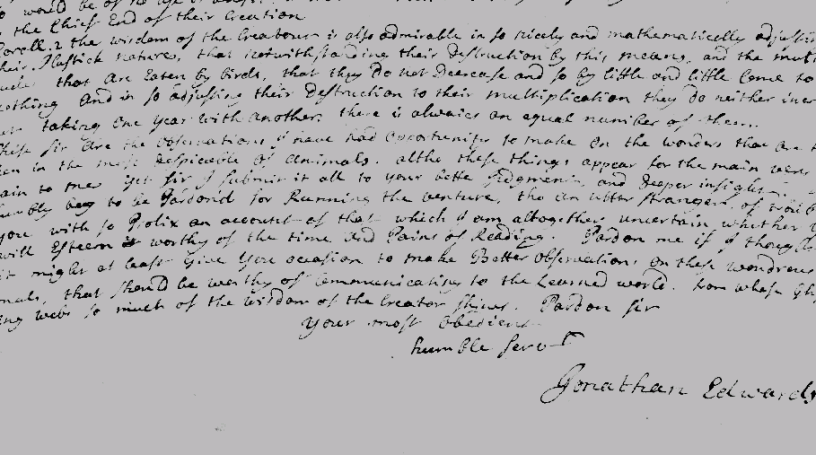 would be of no
the Chief End of their Creation
Coroll. 2 the wisdom of the Creatour is also admirable in so nicely and mathematically adjusti
their Plastick nature, that notwithstanding their destruction by this means, and the mult
that are Eaten by birds, that they do not Decrease and so by little and little Come to
nothing and in so adjusting their destruction to their multiplication they do neither incr
taking one year with another, there is alwaies an equal number of them.
These sir are the observations I have had opportunity to make on the wonders that are
seen in the most Despicable of animals. altho these things appear for the main very
tain to me yet sir I submit it all to your better Judgment, and deeper insight.
humbly beg to be Pardoned for Running the venture, tho an utter stranger of troub
you with so Prolix an account of that which I am altogether uncertain whether
will Esteem worthy of the time and Pains of Reading. Pardon me if I though
it might at least Give You occasion to make Better observations on these wondrous
mals, that should be worthy of Communicating to the Learned world. from whose
ing webs so much of the wisdom of the Creator shines. Pardon sir
Your most obedient
humble servt
Jonathan Edwards